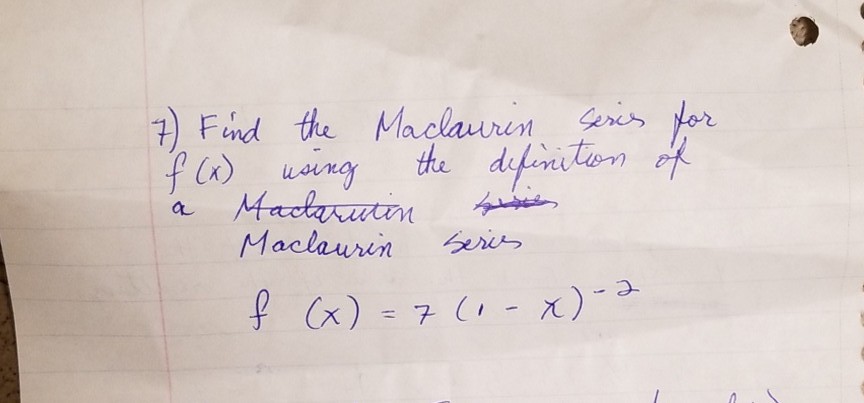 7) Find the Maclaurin series for
f(x) using the definition of
a Maclarutin series
Maclaurin series
f (x) = 7 (1 - x)^-2